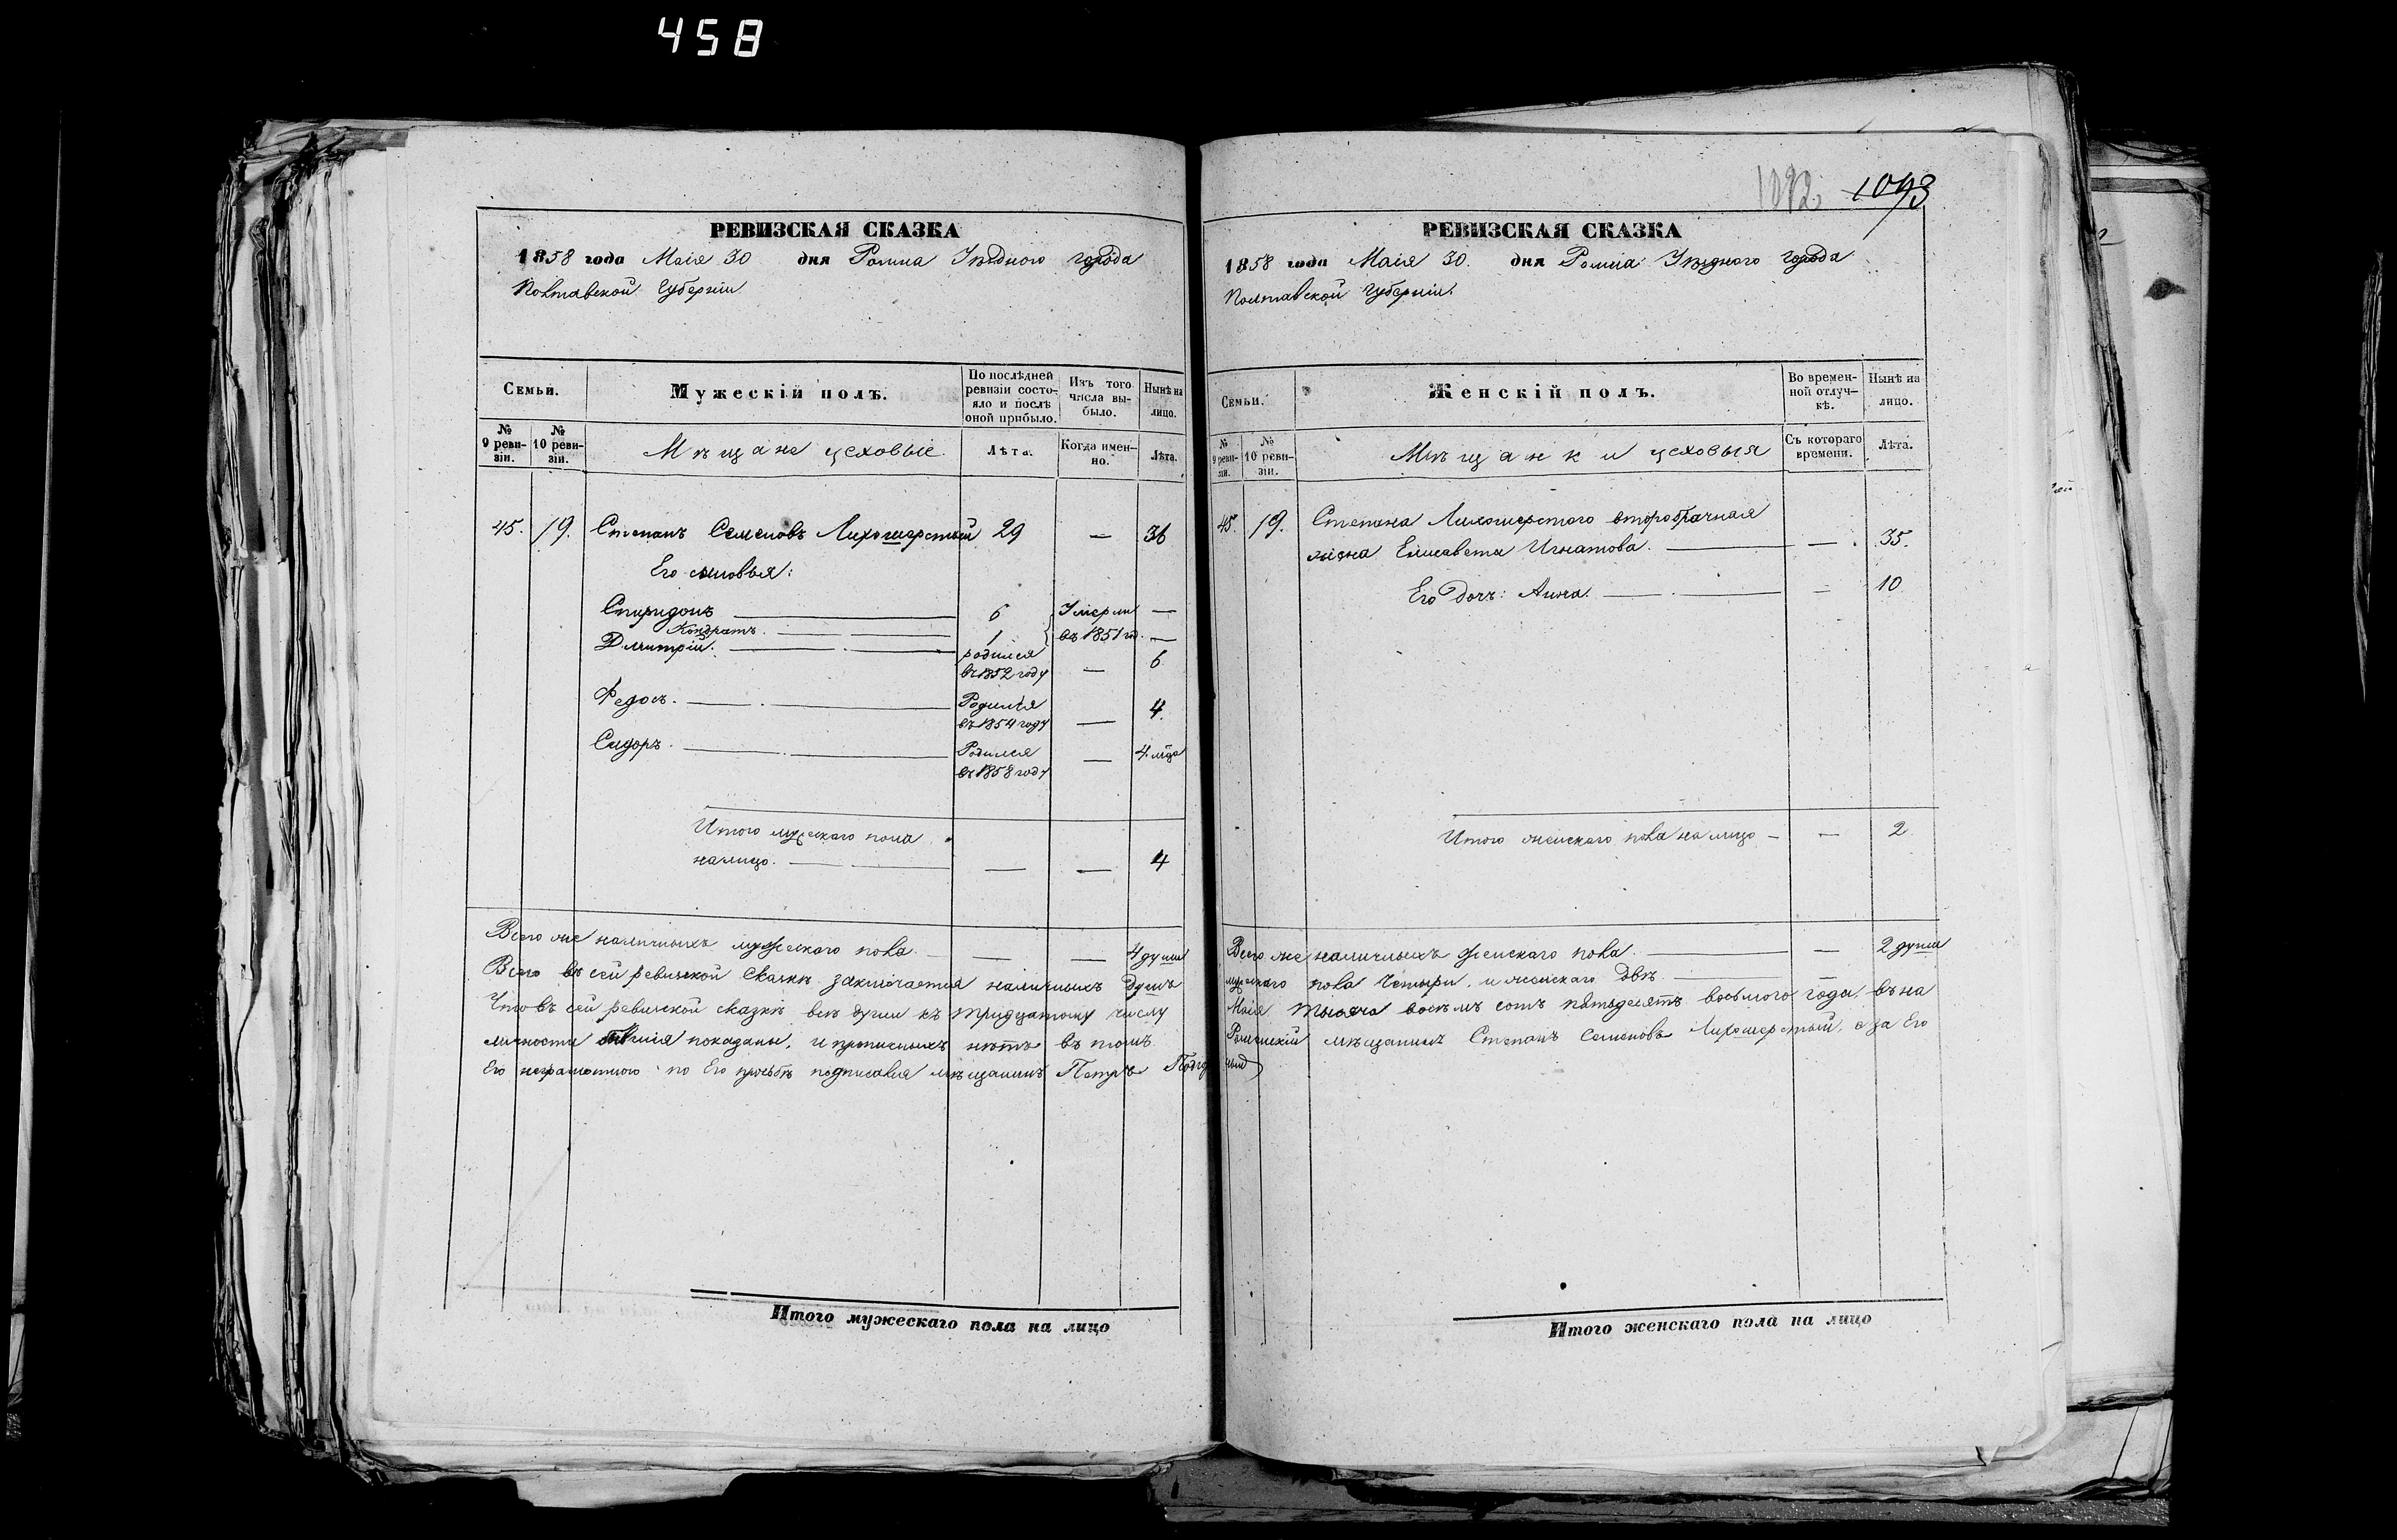 458
РЕВИЗСКАЯ СКАЗКА
1858 года Маія 30 дня Ромна Уѣзднаго города
Полтавской Губерніи
Семьи.
Мужескій полъ.
По послѣдней ревизіи состояло и послѣ оной прибыло.
Изъ того числа выбыло.
Нынѣ на лицо.
№ 9 ревизіи.
№ 10 ревизіи.
Мѣщане цеховые.
Лѣта.
Когда именно.
Лѣта.
45. 19. Степанъ Семеновъ Лихошерстый 29 — 36
Его сыновья:
Спиридонъ 6 Умерли —
Кондратъ. 1 въ 1851 год. —
Дмитрій. родился въ 1852 году — 6
Федосъ. Родился въ 1854 году — 4.
Сидоръ. Родился въ 1858 году — 4 мѣ́ся
Итого мужескаго пола
налицо. — — 4
Всего же наличныхъ мужескаго пола. — — 4 души
Всего въ сей ревизской сказкѣ заключается наличныхъ душъ
Что въ сей ревизской сказкѣ всѣ души къ тридцатому числу
личности показаны, и прописныхъ нѣтъ въ томъ
Его неграмотнаго по Его прозьбѣ подписался мѣщанинъ Петръ
Итого мужескаго пола на лицо
1092. 1093
РЕВИЗСКАЯ СКАЗКА
1858 года Маія 30. дня Ромна Уѣзднаго города
Полтавской Губерніи.
Семьи.
Женскій полъ.
Во временной отлучкѣ.
Нынѣ на лицо.
№ 9 ревизіи.
№ 10 ревизіи.
Мѣщанки цеховыя
Съ котораго времени.
Лѣта.
45. 19. Степана Лихошерстого второбрачная
жена Елисавета Игнатова. — 35.
Его дочь: Анна. — 10
Итого женскаго пола на лицо — — 2
Всего же наличныхъ женскаго пола. — 2 души
мужескаго пола четыри, и женскаго двѣ.
Маія тысяча восемь сотъ пятьдесятъ восьмого года, въ на
Роменскій мѣщанинъ Степанъ Семеновъ Лихошерстый, а за Его
Итого женскаго пола на лицо